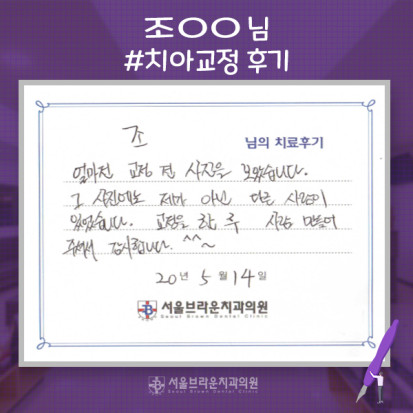 조○○ 님
#치아교정 후기
조
님의 치료후기
얼마전 교정 전 사진을 보았습니다.
그 사진에는 제가 아닌 다른 사람이
있었습니다. 교정을 한 후 사람 만들어
주셔서 감사합니다. ^^~
20 년 5 월 14 일
서울브라운치과의원
Seoul Brown Dental Clinic
서울브라운치과의원